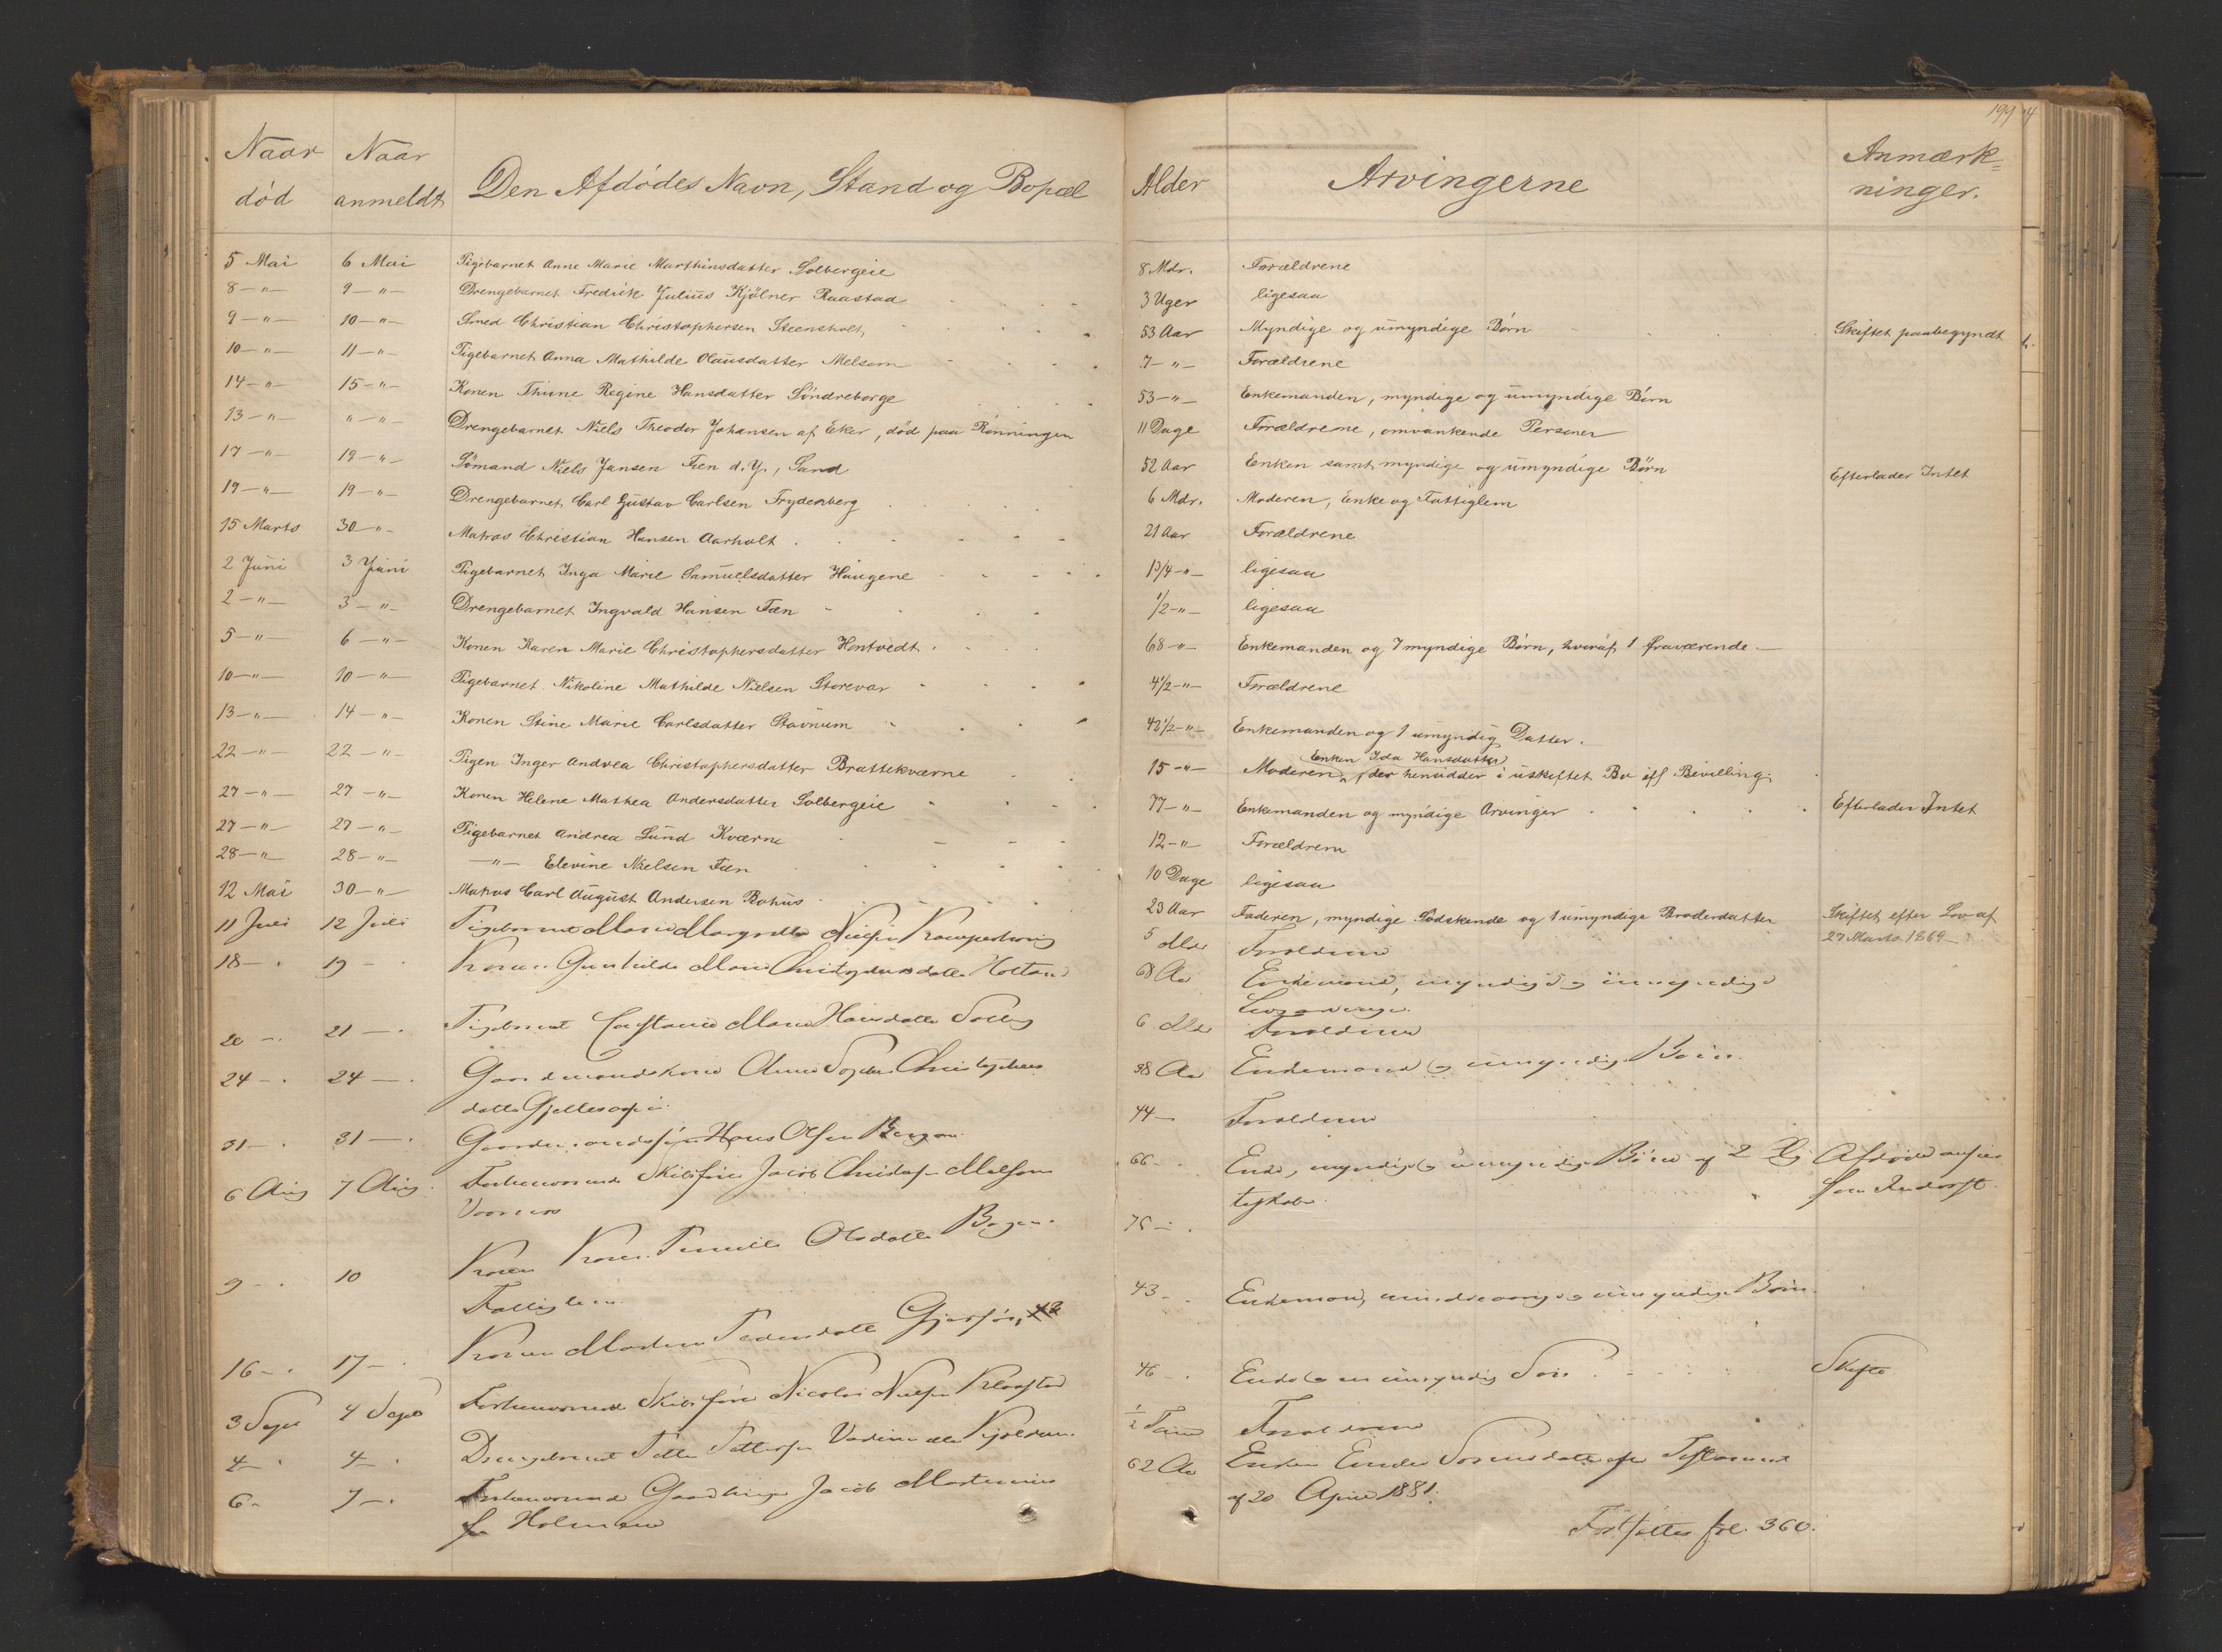 Naar Naar
død anmeldt Den Afdødes Navn, Stand og Bopæl
5 Mai 6 Mai Pigebarnet Anne Marie Marthinsdatter Solbergeie
8 — " — 9 — " — Drengebarnet Fredrik Julius Kjølner Raastad
9 — " — 10 — " — Smed Christian Christophersen Steensholt
10 — " — 11 — " — Pigebarnet Anna Mathilde Olausdatter Melsom
14 — " — 15 — " — Konen Thrine Regine Hansdatter Søndreborge
13 — " — " — " — Drengebarnet Niels Theodor Johansen af Eker, død paa Rønningen
17 — " — 19 — " — Sømand Niels Jansen Fæn d. Y., Sand
19 — " — 19 — " — Drengebarnet Carl Gustav Carlsen Frydenberg
15 Marts 30 — " — Matros Christian Hansen Aarholt
2 Juni 3 Juni Pigebarnet Inga Marie Samuelsdatter Haugene
2 — " — 3 — " — Drengebarnet Ingvald Hansen Fæn
5 — " — 6 — " — Konen Karen Marie Christophersdatter Hentvedt
10 — " — 10 — " — Pigebarnet Nikoline Mathilde Nielsen Storevar
13 — " — 14 — " — Konen Stine Marie Carlsdatter Stavnum
22 — " — 22 — " — Pigen Inger Andrea Christophersdatter Brattekværne
27 — " — 27 — " — Konen Helene Mathea Andersdatter Solbergeie
27 — " — 27 — " — Pigebarnet Andrea Lund Kværne
28 — " — 28 — " — — " — Elevine Nielsen Fæn
12 Mai 30 — " — Matros Carl August Andersen Bohus
11 Juli 12 Juli Pigebarnet Marie
18 — . 19 — Konen Gunhilde Marie
20 — . 21 — . Pigebarnet Constance Marie Hansdatter
24 — . 24 — . Gaardmandskone Anne Sophie Christophers
datter
31 — . 31 — . Hans Olsen Bergan
6 Aug 7 Aug. Forhenværende Skibsfører Jacob Melsom
9 — . 10 Konen Karen Pernille Olsdatter
Fattiglem
16 — . 17 — . Konen
3 Sept 4 Sept Forhenværende Skibsfører Nicolai Nielsen
4 — . 4 — . Drengebarnet
6 — 7 — . Forhenværende Jacob
199 4
Alder Arvingerne Anmærk=
ninger.
8 Mdr. Forældrene
3 Uger ligesaa
53 Aar Myndige og umyndige Børn Skiftet paabegyndt
7 — " — Forældrene
53 — " — Enkemanden, myndige og umyndige Børn
11 Dage Forældrene, omvankende Personer
52 Aar Enken samt myndige og umyndige Børn Efterlader Intet
6 Mdr. Moderen, Enke og Fattiglem
21 Aar Forældrene
1 3/4 — " — ligesaa
1/2 — " — ligesaa
68 — " — Enkemanden og 7 myndige Børn, hvoraf 1 fraværende
4 1/2 — " — Forældrene
42 1/2 — " — Enkemanden og 1 umyndig Datter.
Enken Ida Hansdatter
15 — " — Moderen, der hensidder i uskiftet Bo iflg Bevilling
77 — " — Enkemanden og myndige Arvinger Efterlader Intet
12 — " — Forældrene
10 Dage ligesaa
23 Aar Faderen, myndige Sødskende og 1 umyndige Broderdatter Skiftet efter Lov af
27 Marts 1869
5 Mdr Forældrene
68 Aar Enkemand, myndige og umyndige
Livsarvinger.
6 Mdr Forældrene
38 Aar Enkemand og umyndige Børn.
44 — Forældrene
66 — Enke, myndige og umyndige Børn af 2 Æg
teskaber.
75 — .
43 — . Enkemand, mindreaarige og umyndige Børn.
46 — . Enke og en umyndig Søn Skifte
1/2 Time Forældrene
62 Aar Enken
af 20 April 1881.
Fortsættes fol. 360.